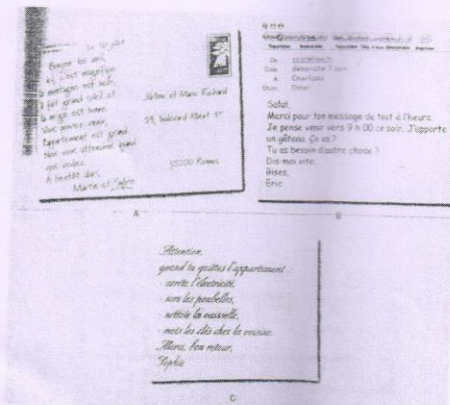 Bonjour les amis,
ici, c'est magnifique,
la montagne est belle,
il fait grand soleil et
la neige est bonne.
Vous pouvez venir,
l'appartement est grand.
Nous vous attendons quand
vous voulez.
À bientôt donc,
Martin et
et Marie Richard
59, boulevard Albert 1er
35200 Rennes
A
De
Date dimanche
À Charlotte
Objet Dîner
Salut,
Merci pour ton message de tout à l'heure.
Je pense venir vers 9 h 00 ce soir. J'apporte
un gâteau. Ça va ?
Tu as besoin d'autre chose ?
Dis-moi vite,
Bises,
Eric
B
Attention,
quand tu quittes l'appartement
- arrête l'électricité,
- sors les poubelles,
- nettoie la vaisselle,
- mets les clés chez la voisine.
Merci, bon retour,
Sophie
C